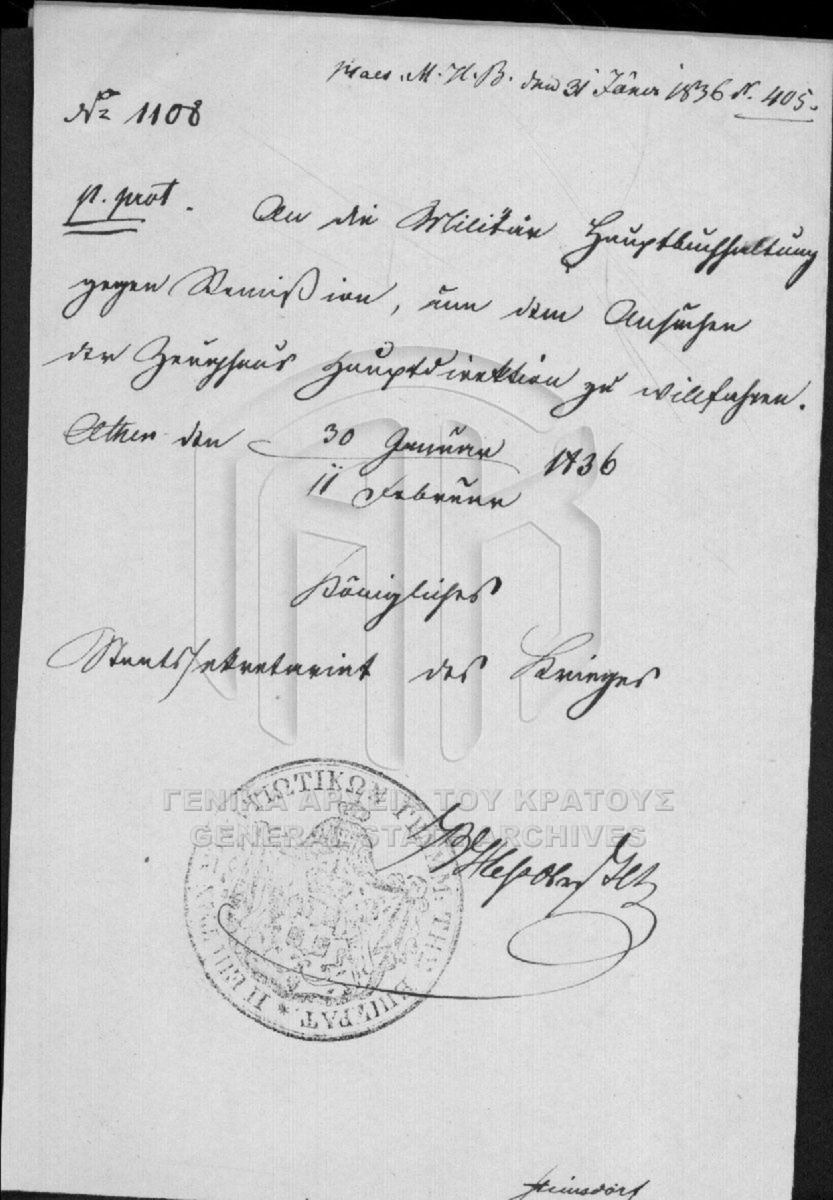 praes. M. H. B. den 31 Jäner 1836 N. 405.
No 1108
p. prot. An die Militär Hauptbuchhaltung
gegen Remission, um dem Ansuchen
der Zeughaus Hauptdirektion zu willfahren.
Athen den 30 Januar 1836
11 Februar
Königliches
Staatssekretariat des Krieges
ΓΕΝΙΚΑ ΑΡΧΕΙΑ ΤΟΥ ΚΡΑΤΟΥΣ
GENERAL STATE ARCHIVES